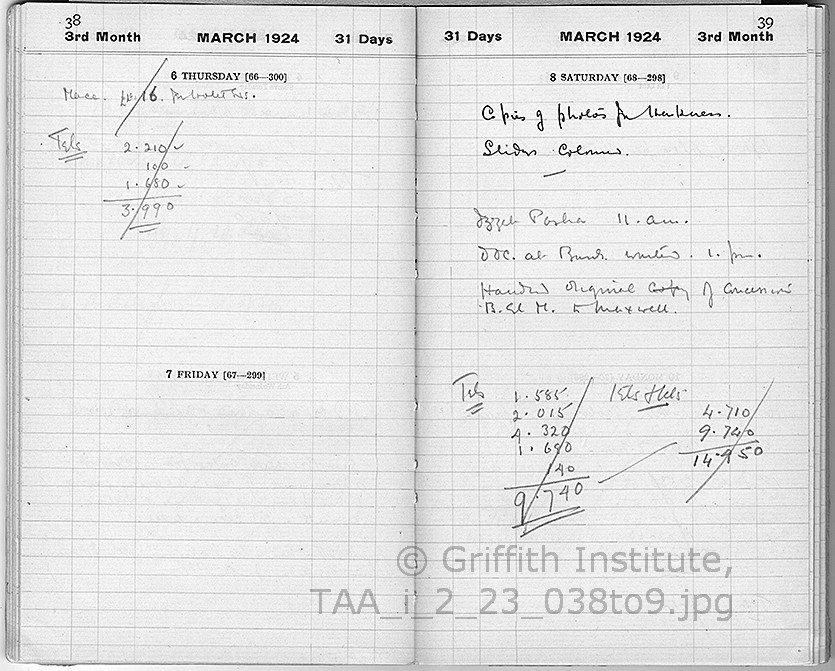 38
3rd Month MARCH 1924 31 Days
6 THURSDAY [66—300]
Mace. £E.16. for
Tels 2.210
100
1.680
3.990
7 FRIDAY [67—299]
39
31 Days MARCH 1924 3rd Month
8 SATURDAY [68—298]
Copies of photos for
Slides Coloured.
Izzet Pasha 11. a.m.
at 1. p.m.
Handed original Copy of Concession
B. el M. to Maxwell.
Tels 1.585
2.015
4.320
1.680
140
9.740
Tels
4.710
9.740
14.450
© Griffith Institute,
TAA_i_2_23_038to9.jpg